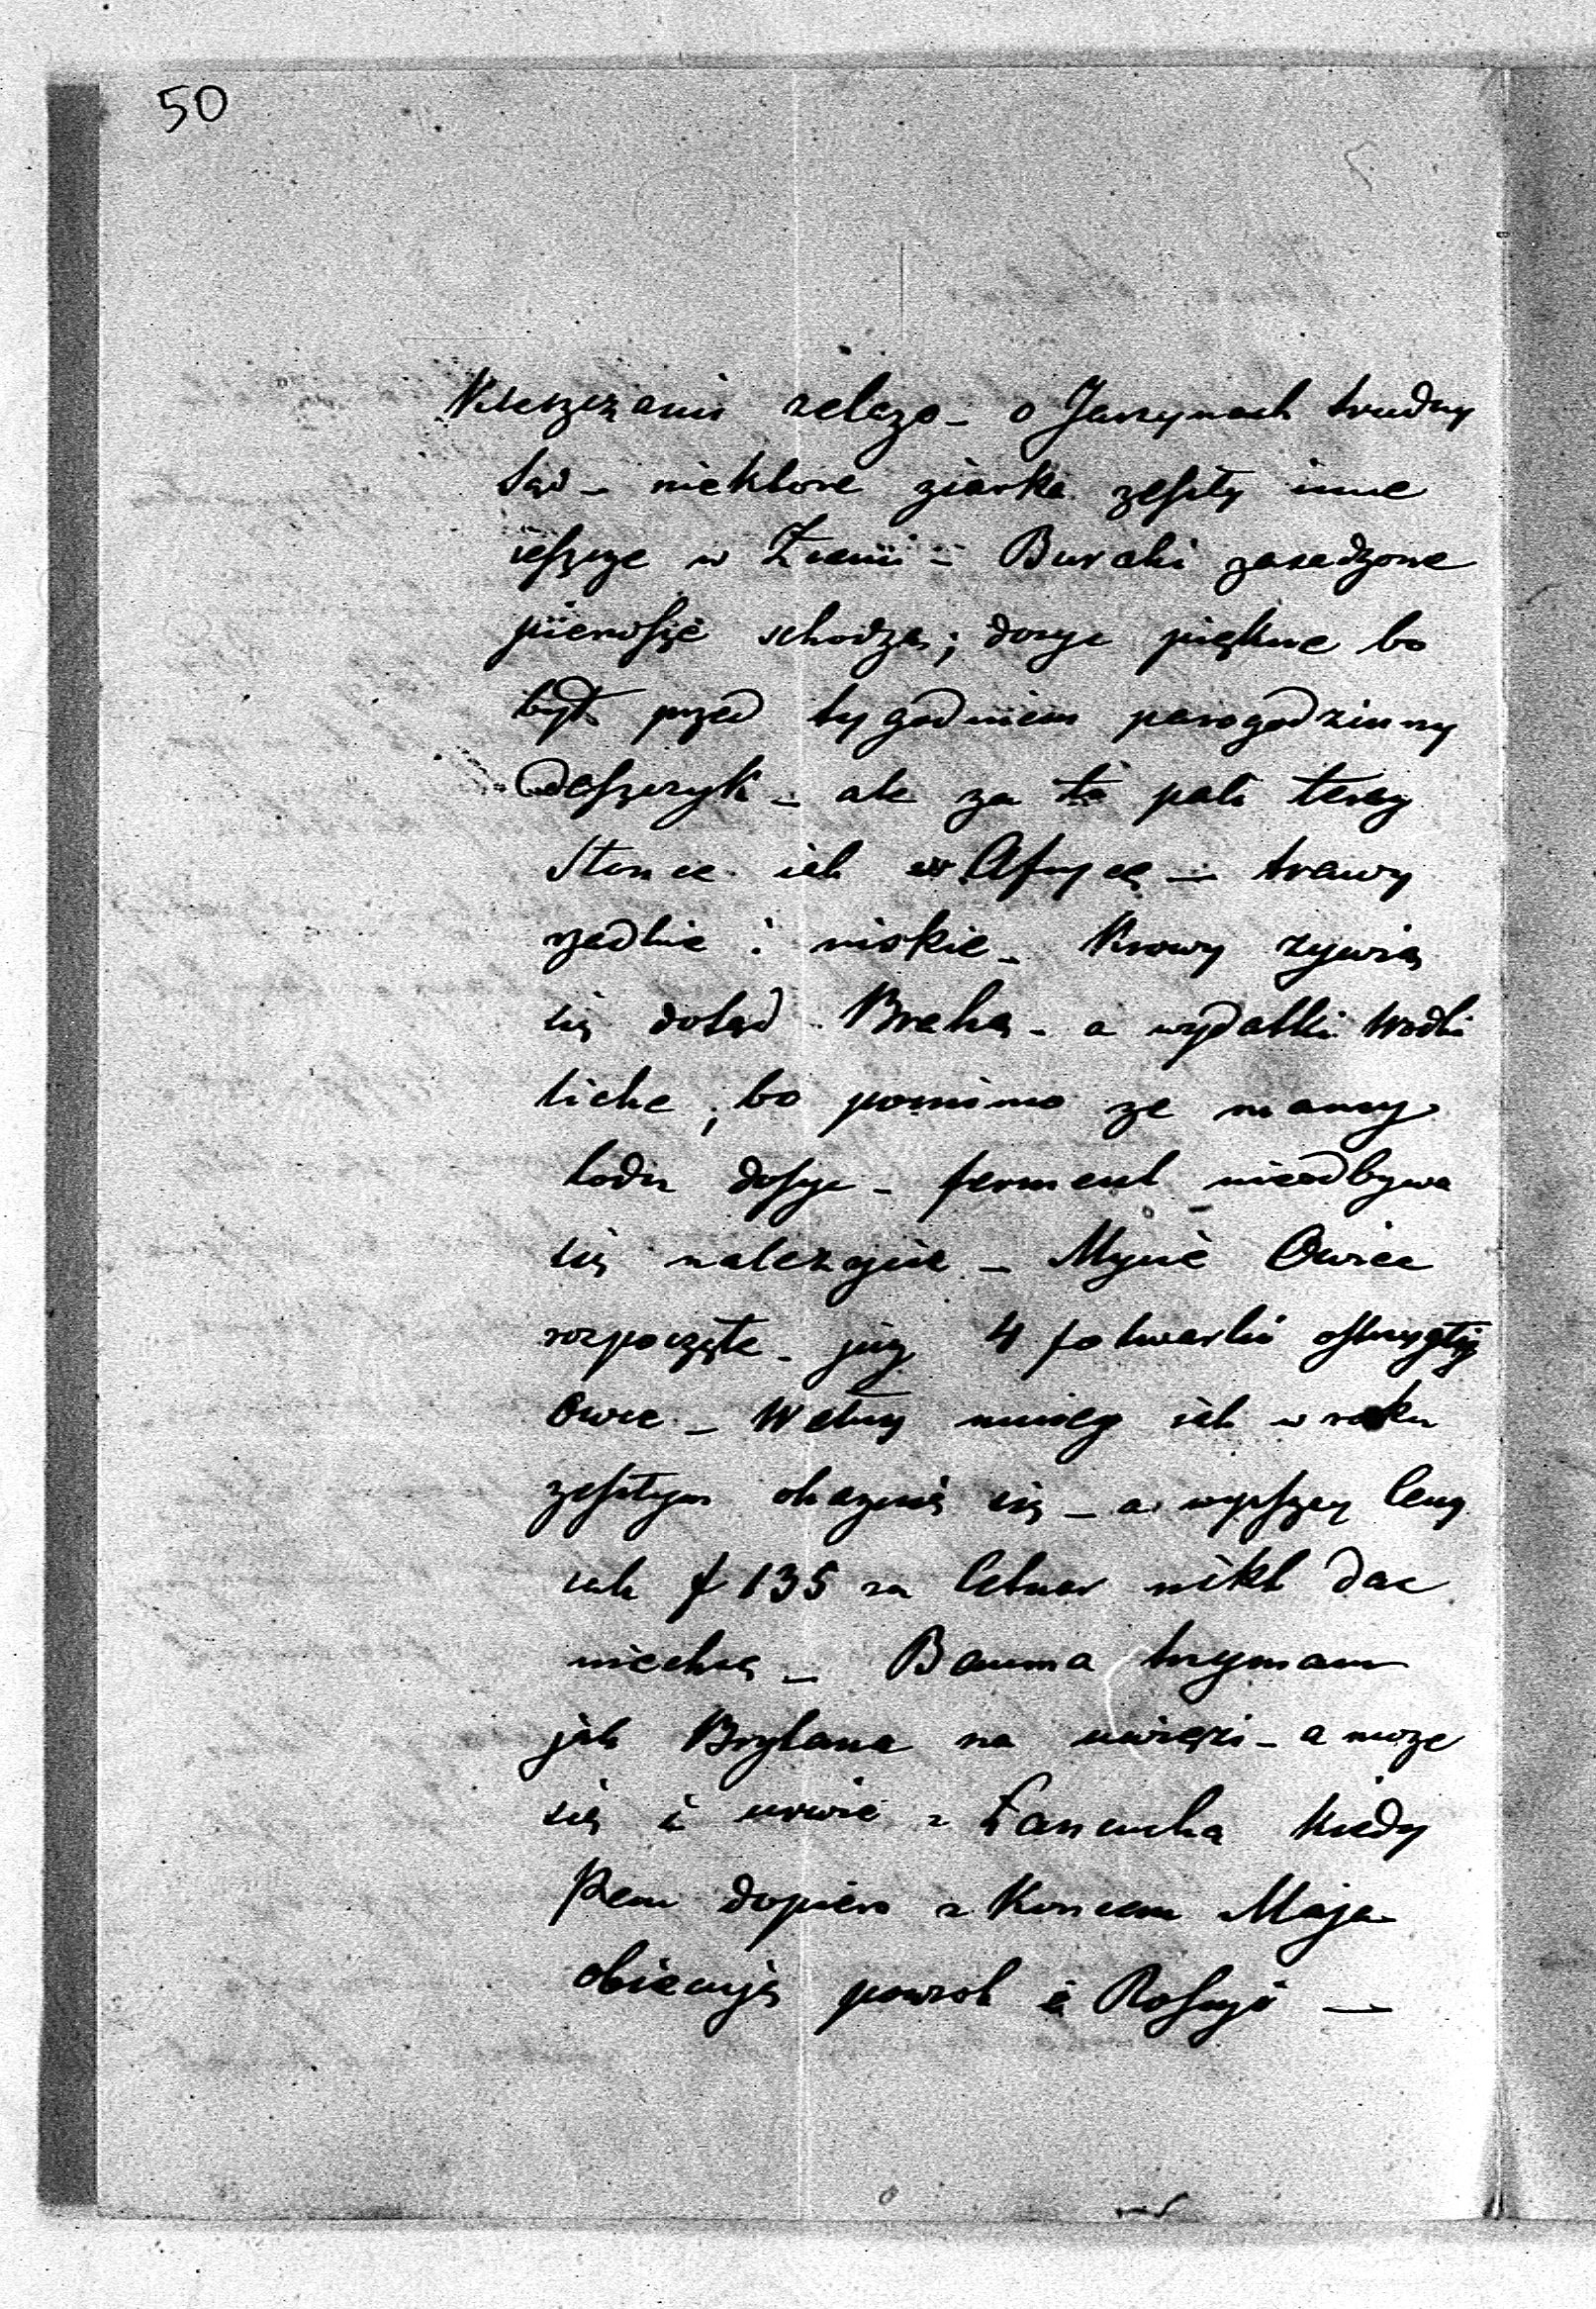 50
zelazo - o Jarzynach trudny
Sąd - niektore ziarka zeszły inne
ieszcze w Ziemi - Buraki zasadzone
pierwsze schodzą; dosyc piękne bo
był przed tygodniem parogodzinny
deszczyk - ale za to pali teraz
Słonce iak w Afryce - trawy
rzadkie i niskie - Krowy zywią
się dotąd Brahą - a wydatki Wodki
liche, bo pomimo ze mamy
lodu dosyc - ferment nieodbywa
się nalezycie - Mycie Owiec
rozpoczęte - juz 4 folwarki ostrzygły
Owce - Wełny mniey iak w roku
zeszłym okazuie się - a wyzszey Ceny
iak f 135 za Cetnar nikt dac
niechce - Bauma trzymam
jak Brytana na uwięzi - a moze
się i urwie z Łancucha kiedy
Pan dopiero z Koncem Maja
obiecuje powrot z Rossyi -